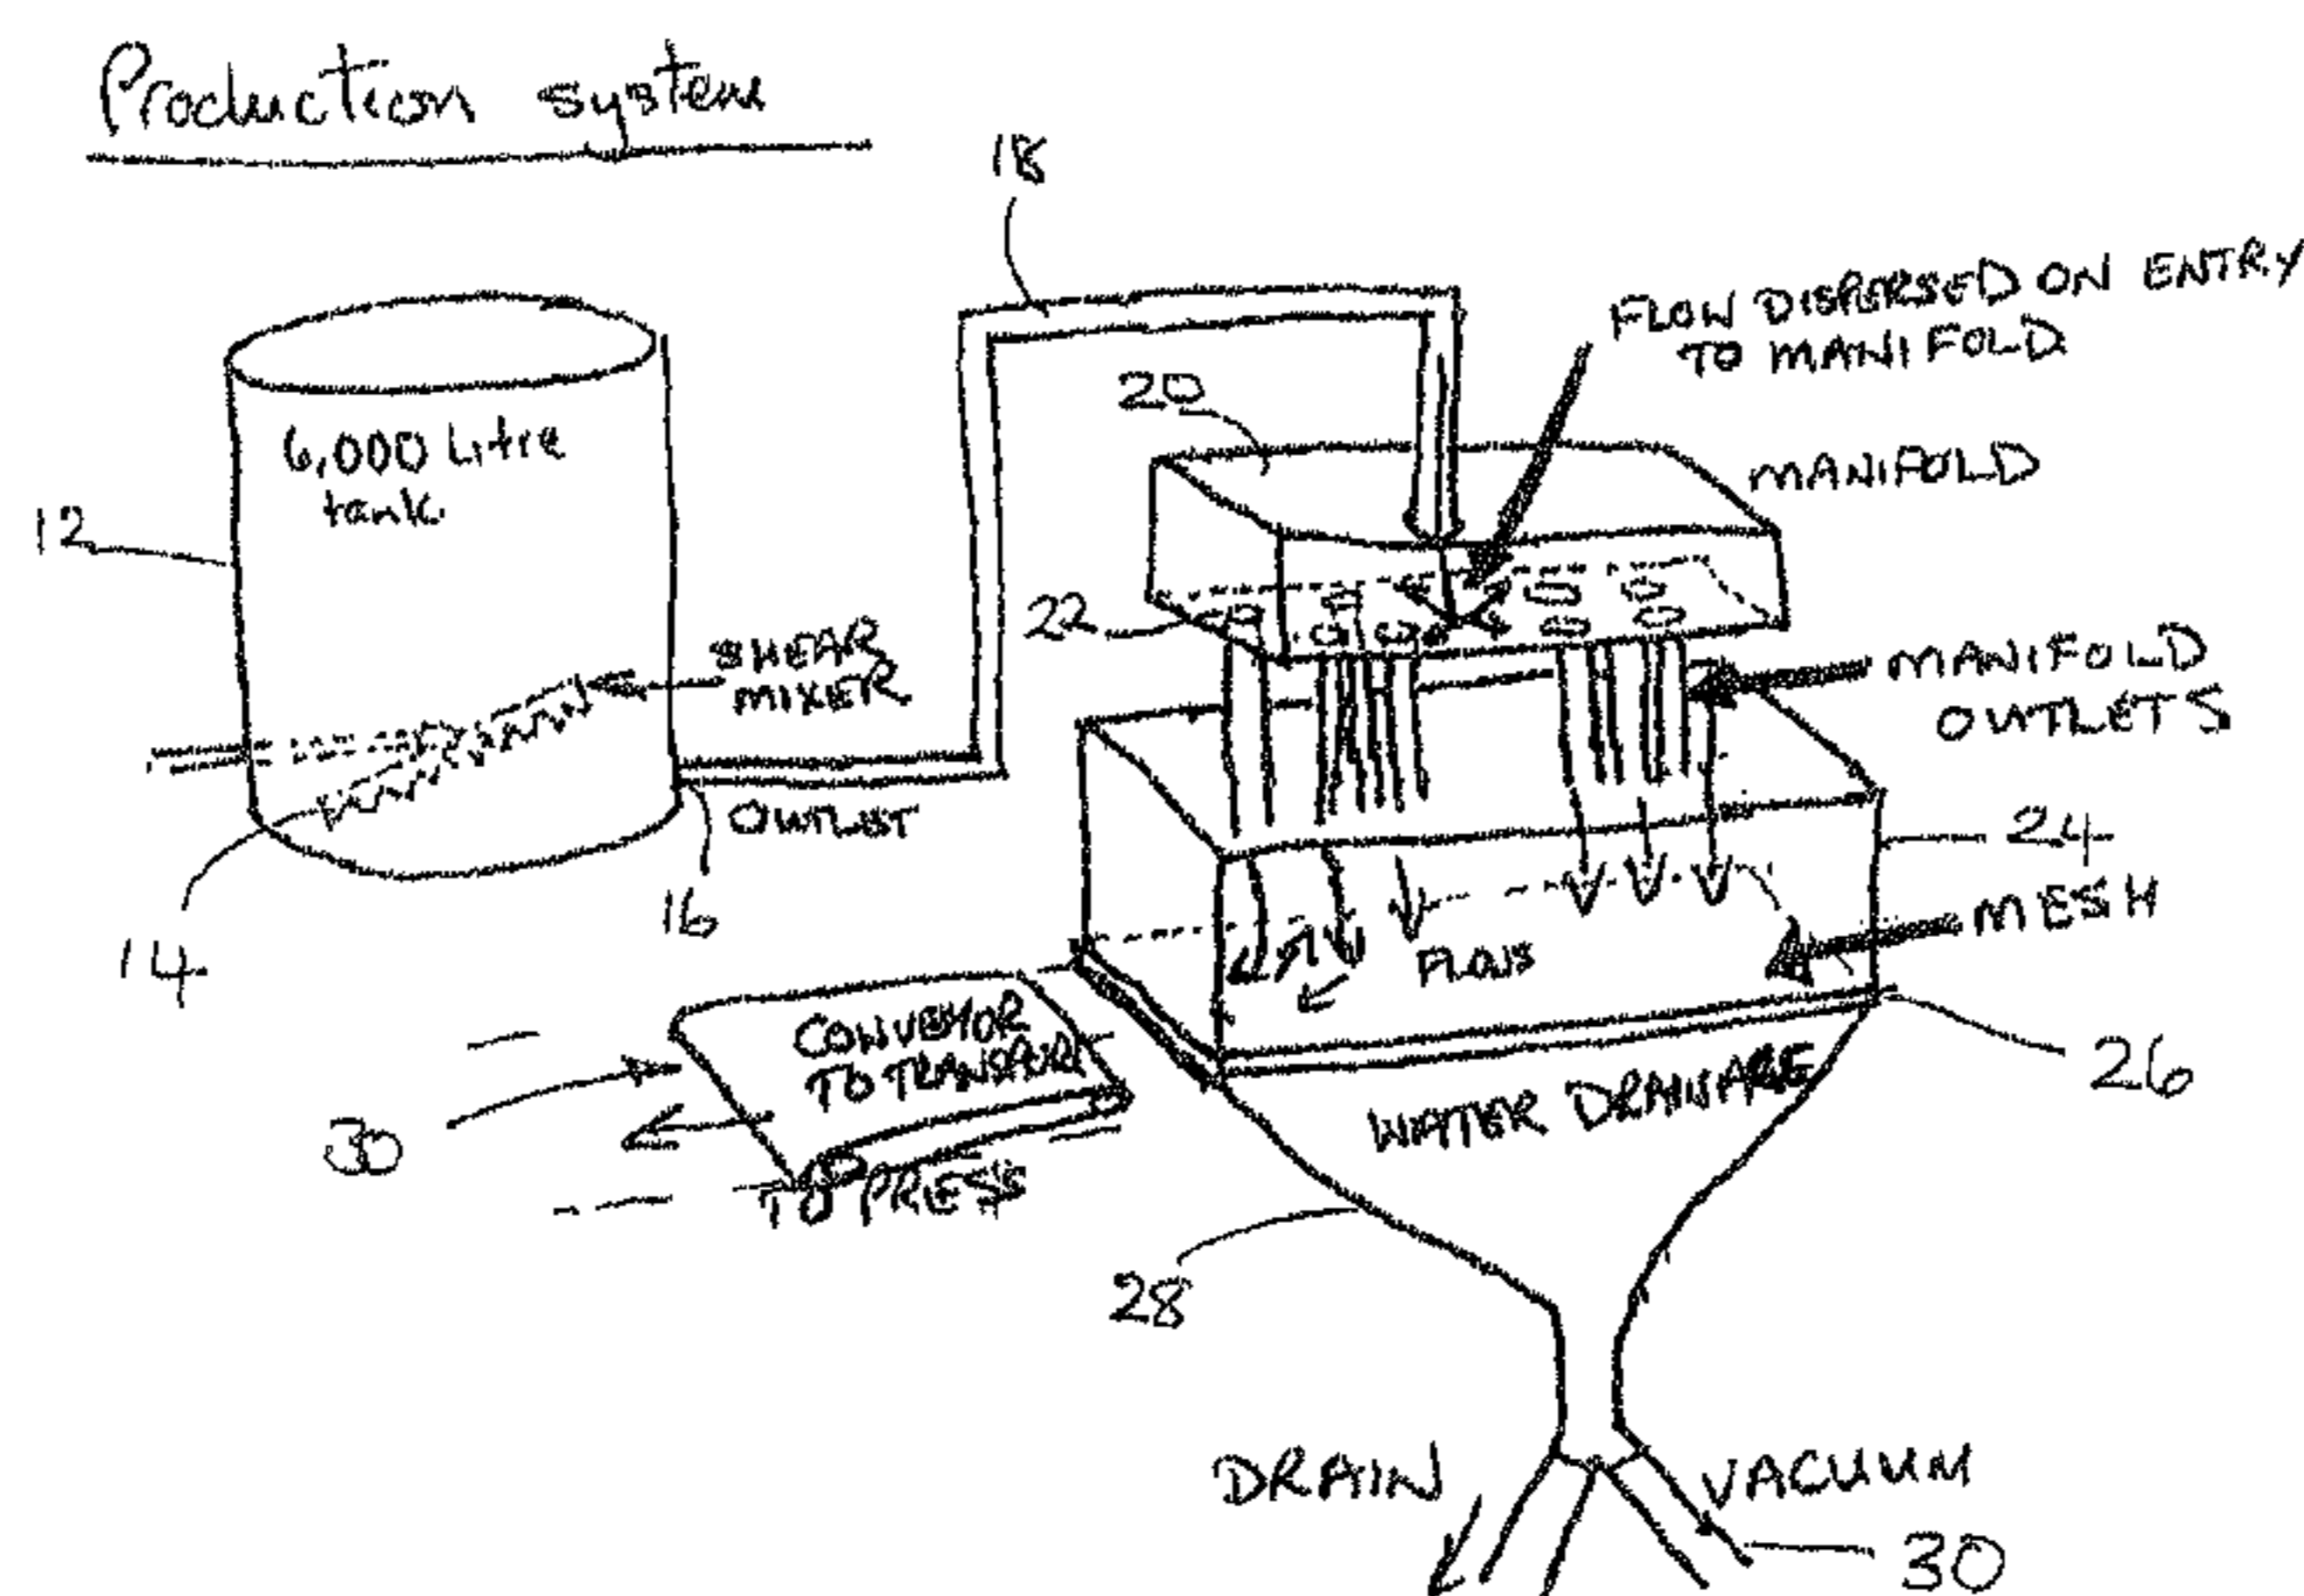 Production system
18
FLOW DISPERSED ON ENTRY
TO MANIFOLD
20
MANIFOLD
6,000 Litre
tank
12
22
SHEAR
MIXER
MANIFOLD
OUTLETS
OUTLET
24
16
14
MESH
FLOW
CONVEYOR
TO TRANSFER
TO PRESS
30
WATER DRAINAGE
26
28
DRAIN
VACUUM
30